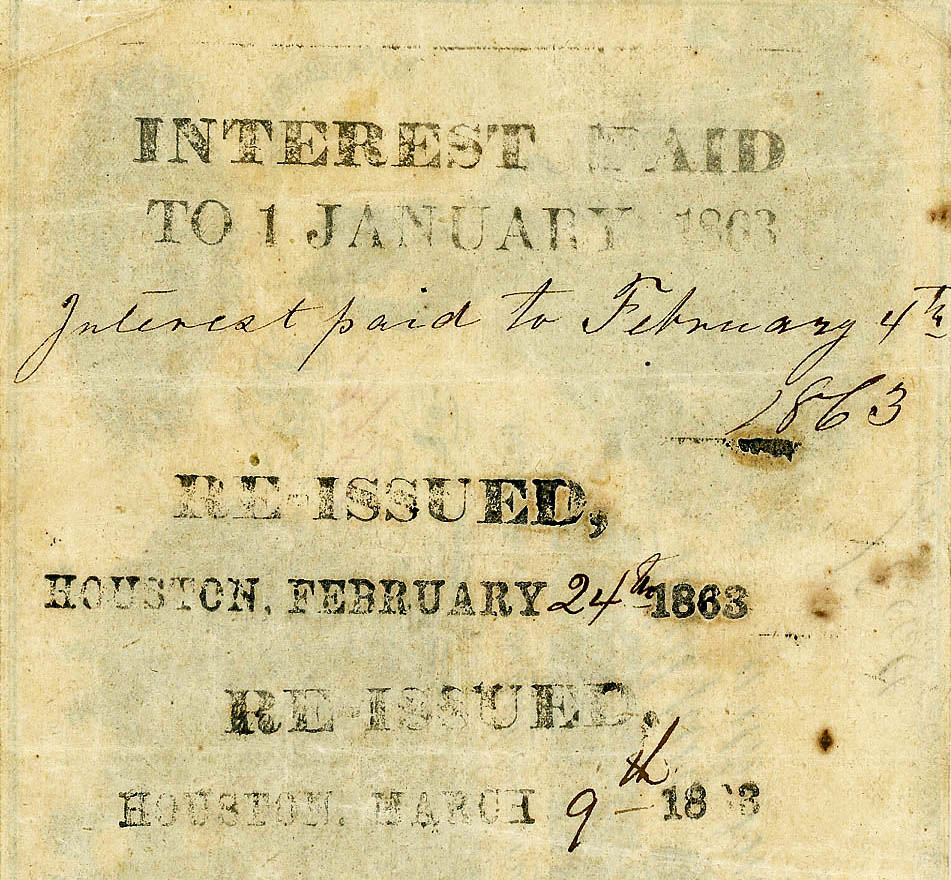 INTEREST PAID
TO 1 JANUARY 1863
Interest paid to February 4th
1863
RE-ISSUED,
HOUSTON, FEBRUARY 24th 1863
RE-ISSUED,
HOUSTON, MARCH 9th 1863